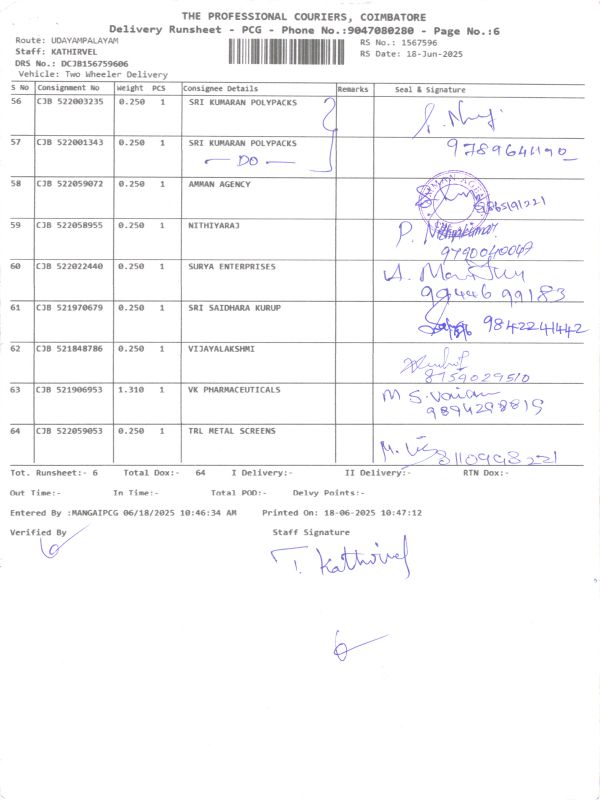 THE PROFESSIONAL COURIERS, COIMBATORE
Delivery Runsheet - PCG - Phone No.:9047080280 - Page No.:6
Route: UDAYAMPALAYAM RS No.: 1567596
Staff: KATHIRVEL RS Date: 18-Jun-2025
DRS No.: DCJB156759606
Vehicle: Two Wheeler Delivery
S No Consignment No Weight PCS Consignee Details Remarks Seal & Signature
56 CJB 522003235 0.250 1 SRI KUMARAN POLYPACKS
57 CJB 522001343 0.250 1 SRI KUMARAN POLYPACKS
— DO —
58 CJB 522059072 0.250 1 AMMAN AGENCY
59 CJB 522058955 0.250 1 NITHIYARAJ
9790040047
60 CJB 522022440 0.250 1 SURYA ENTERPRISES
99446 99183
61 CJB 521970679 0.250 1 SRI SAIDHARA KURUP
9842241442
62 CJB 521848786 0.250 1 VIJAYALAKSHMI
8759029510
63 CJB 521906953 1.310 1 VK PHARMACEUTICALS
9894298819
64 CJB 522059053 0.250 1 TRL METAL SCREENS
Tot. Runsheet:- 6 Total Dox:- 64 I Delivery:- II Delivery:- RTN Dox:-
Out Time:- In Time:- Total POD:- Delvy Points:-
Entered By :MANGAIPCG 06/18/2025 10:46:34 AM Printed On: 18-06-2025 10:47:12
Verified By Staff Signature
T. Kathirvel